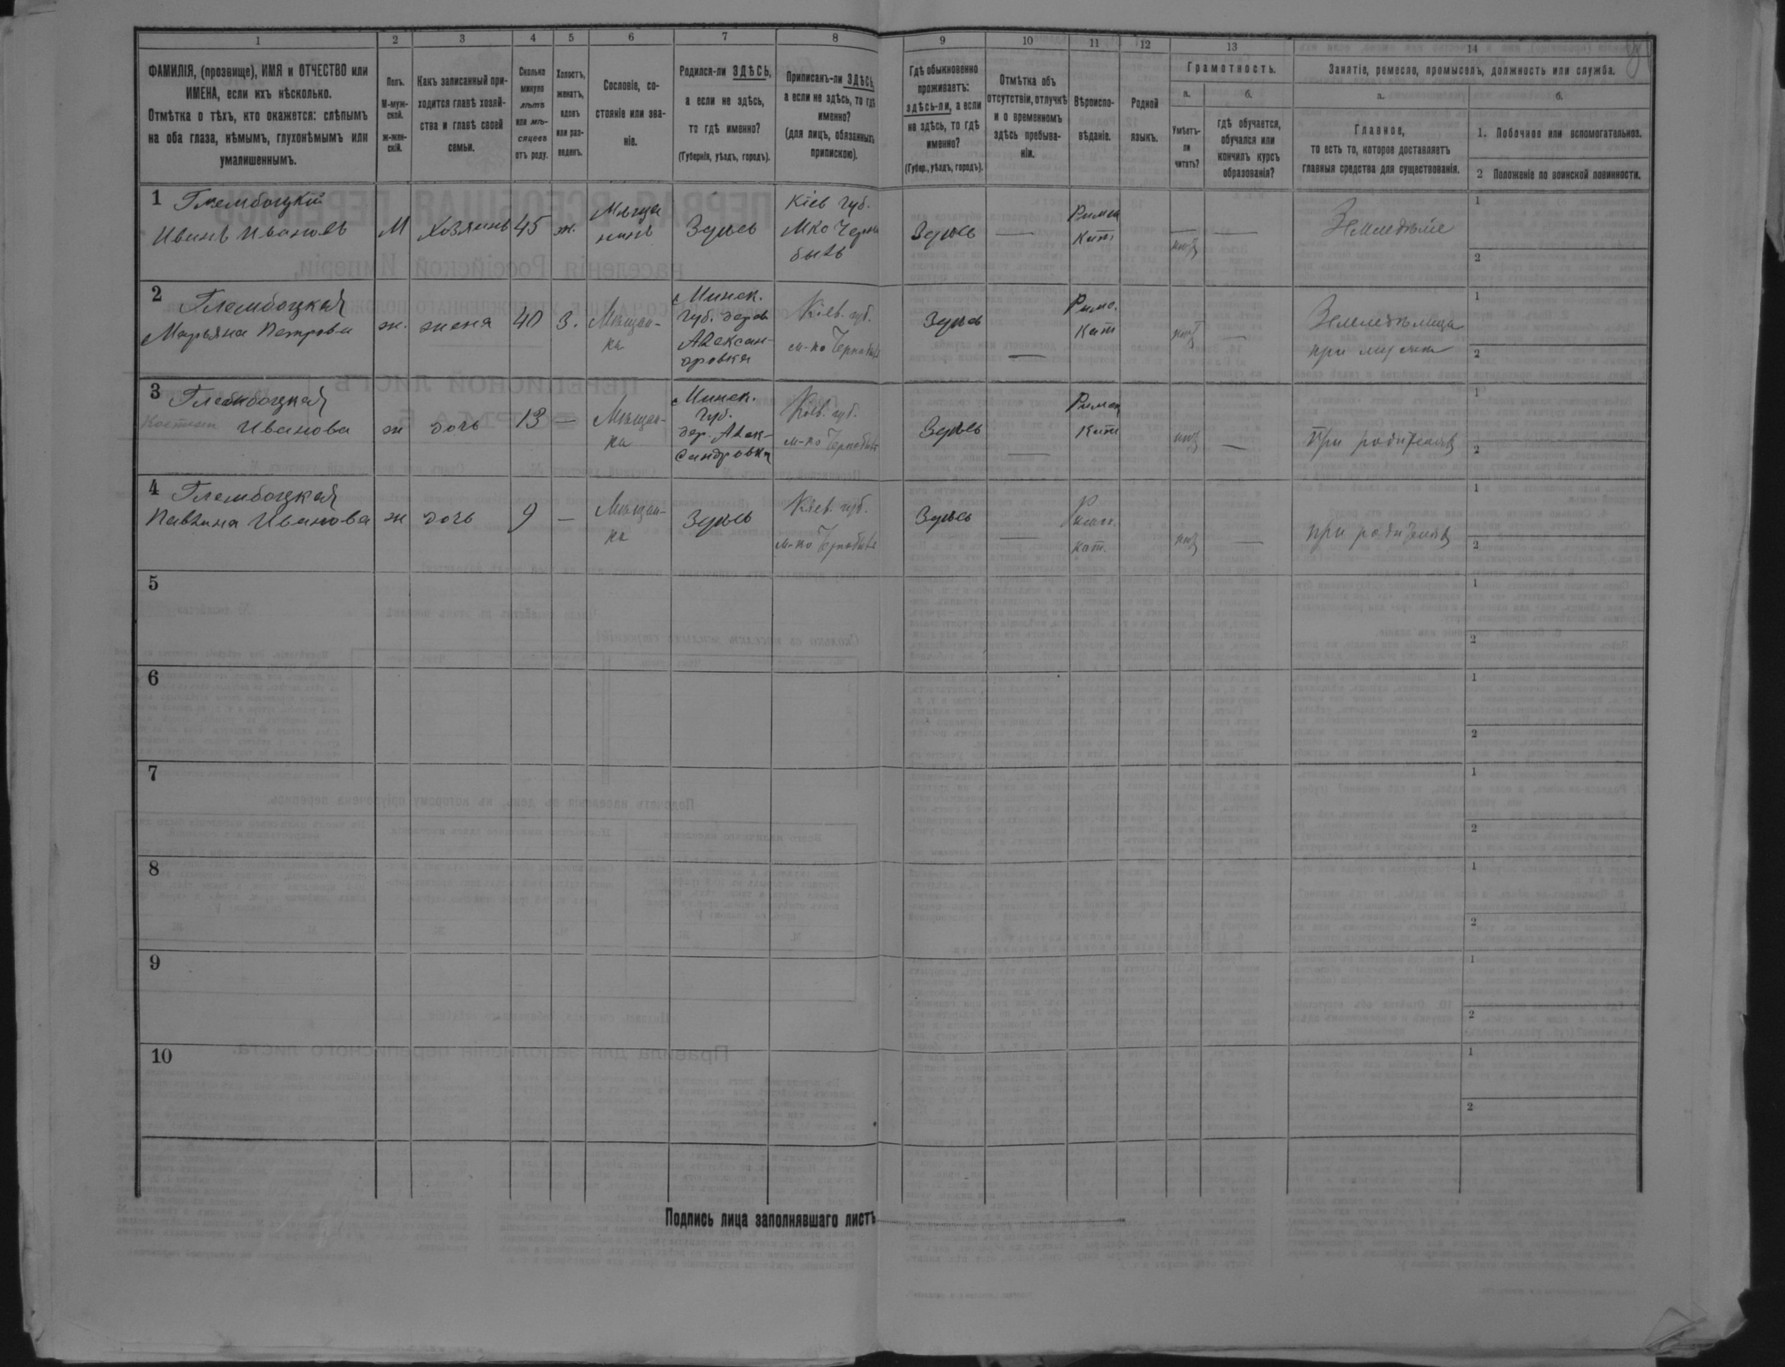 1 2 3 4 5 6 7 8 9 10 11 12 13 14
ФАМИЛІЯ, (прозвище), ИМЯ и ОТЧЕСТВО или
ИМЕНА, если ихъ нѣсколько.
Отмѣтка о тѣхъ, кто окажется: слѣпымъ
на оба глаза, нѣмымъ, глухонѣмымъ или
умалишеннымъ.
Полъ.
М-муж-
ской.
ж-жен-
скій.
Какъ записанный при-
ходится главѣ хозяй-
ства и главѣ своей
семьи.
Сколько
минуло
лѣтъ
или мѣ-
сяцевъ
отъ роду.
Холостъ,
женатъ,
вдовъ
или раз-
веденъ.
Сословіе, со-
стояніе или зва-
ніе.
Родился-ли ЗДѢСЬ,
а если не здѣсь,
то гдѣ именно?
(Губернія, уѣздъ, городъ).
Приписанъ-ли ЗДѢСЬ,
а если не здѣсь, то гдѣ
именно?
(для лицъ, обязанныхъ
припискою).
Гдѣ обыкновенно
проживаетъ:
здѣсь-ли, а если
не здѣсь, то гдѣ
именно?
(Губер., уѣздъ, городъ).
Отмѣтка объ
отсутствіи, отлучкѣ
и о временномъ
здѣсь пребыва-
ніи.
Вѣроиспо-
вѣданіе.
Родной
языкъ.
Грамотность.
а.
Умѣетъ-
ли
читать?
б.
гдѣ обучается,
обучался или
кончилъ курсъ
образованія?
Занятіе, ремесло, промыселъ, должность или служба.
а.
Главное,
то есть то, которое доставляетъ
главныя средства для существованія.
б.
1. Побочное или вспомогательное.
2 Положеніе по воинской повинности.
1 Глембоцкій
Иванъ Ивановъ
М
Хозяинъ
45
ж.
Мѣща
нинъ
Здѣсь
Кіев губ.
Мко Черно
быль
Здѣсь
—
Римск
Кат
нѣт
—
Земледѣліе
1
2
2 Глембоцкая
Марьяна Петрова
ж.
жена
40
З.
Мѣщан-
ка
Минск.
губ. дерев
Алексан-
дровка
Кіев. губ.
м-ко Чернобыль
Здѣсь
—
Римс.
Кат
нѣт
—
Земледѣлица
при мужѣ
1
2
3 Глембоцкая
Иванова
ж
дочь
13
—
Мѣщан-
ка
Минск.
Губ.
дер. Алек-
сандровка
Кіев. губ.
м-ко Чернобыль
Здѣсь
—
Римск
Кат
нѣт
—
При родителяхъ
1
2
4 Глембоцкая
Павлина Иванова
ж
дочь
9
—
Мѣщан-
ка
Здѣсь
Кіев. губ.
м-ко Чернобыль
Здѣсь
—
Римск.
Кат.
нѣт
—
при родителяхъ
1
2
5
1
2
6
1
2
7
1
2
8
1
2
9
1
2
10
1
2
Подпись лица заполнявшаго листъ